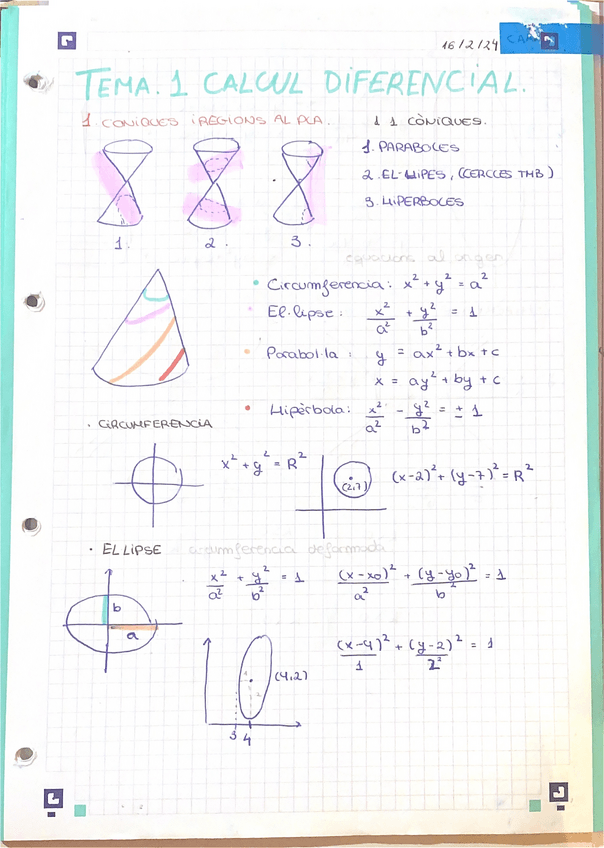 16/2/24
TEMA. 1 CALCUL DIFERENCIAL.
1. CONIQUES i REGIONS AL PLA.
1 1 CÒNIQUES.
1. PARABOLES
2. EL·LIPES, (CERCLES TMB)
3. HIPERBOLES
1. 2. 3.
equacions al origen
• Circumferencia: x² + y² = a²
• El·lipse: x²/a² + y²/b² = 1
• Parabol·la: y = ax² + bx + c
x = ay² + by + c
• Hipèrbola: x²/a² - y²/b² = ± 1
· CIRCUMFERENCIA
x² + y² = R²
(2,7)
(x-2)² + (y-7)² = R²
· ELLIPSE circumferencia deformada
x²/a² + y²/b² = 1
(x-x0)²/a² + (y-y0)²/b² = 1
b
a
(x-4)²/1 + (y-2)²/2² = 1
(4,2)
3 4